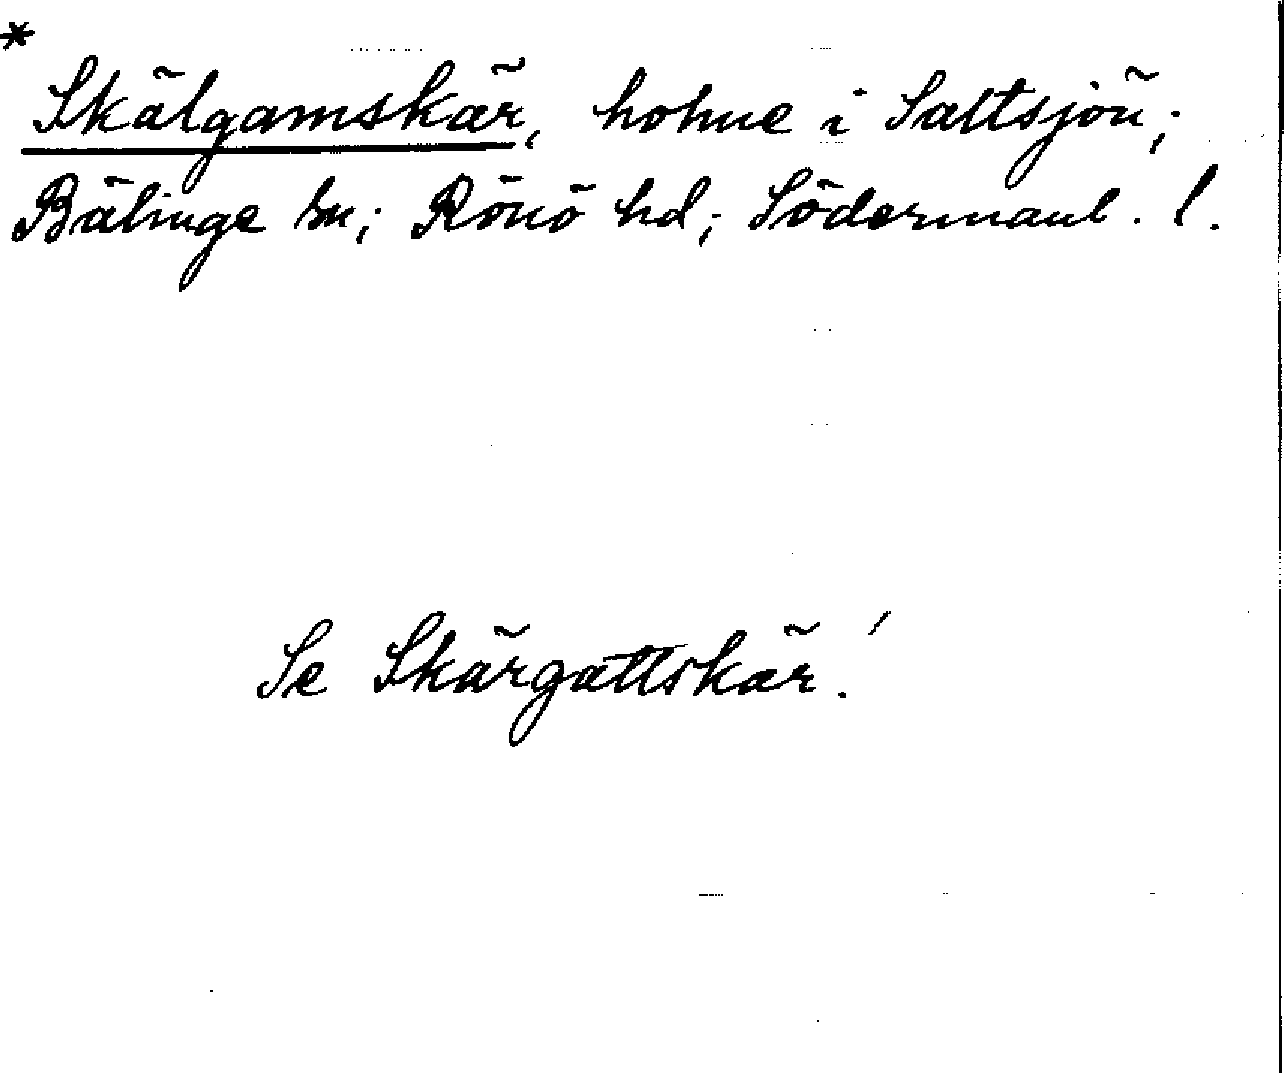 *
Skälgamskär, holme i Saltsjön;
Bälinge sn; Rönö hd; Södermanl. l.
Se Skärgattskär!